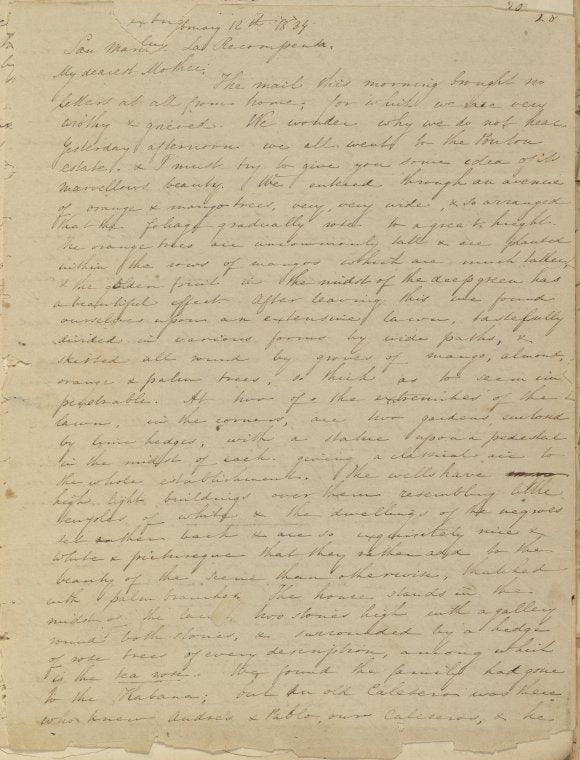 28
February 12th 1834
San Marcos. La Recompensa.
My dearest Mother;
The mail this morning brought no
letters at all from home; for which we are very
wrothy & grieved. We wonder why we do not hear.
Yesterday afternoon we all went to the
estate. & I must try to give you some idea of its
marvellous beauty. We entered through an avenue
of orange & mango trees, very, very wide, & so arranged
that the foliage gradually rose to a great height.
The orange trees are uncommonly tall & are planted
within the rows of mangos which are much taller,
& the golden fruit in the midst of the deep green has
a beautiful effect. After leaving this we found
ourselves upon an extensive lawn, tastefully
divided in various forms by wide paths, &
skirted all round by groves of mango, almond,
orange & palm trees, so thick as to seem im
penetrable. At two of the extremities of the
lawn, in the corners, are two gardens enclosed
by lime hedges, with a statue upon a pedestal
in the midst of each giving a classical air to
the whole establishment. The wells have
high light buildings over them resembling little
temples, of white & the dwellings of the negroes
set rather back & are so exquisitely nice &
white & picturesque that they rather add to the
beauty of the scene than otherwise, thatched
with palm branches. The house stands in the
midst of the lawn two stories high with a gallery
round both stories, & surrounded by a hedge
of rose trees of every description, among which
is the tea rose. We found the family had gone
to the Habana; but an old Calesero was there
who knew Andres & Pablo, our Caleseros, & he